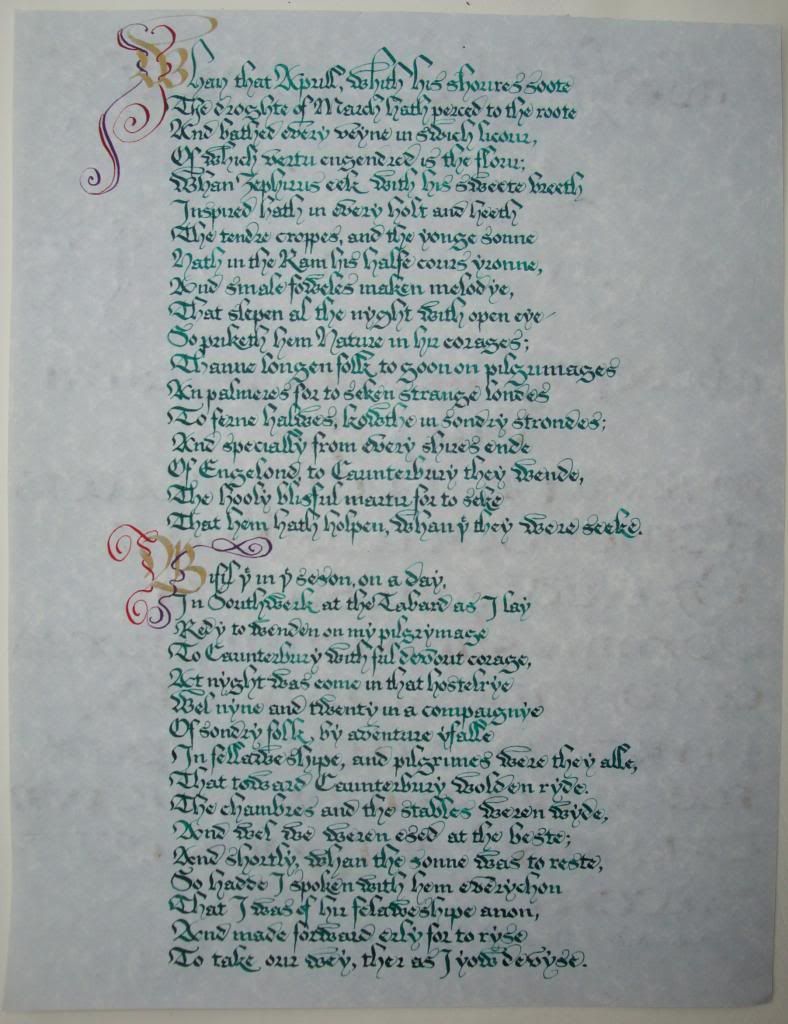 Whan that Aprill, with his shoures soote
The droghte of March hath perced to the roote
And bathed every veyne in swich licour,
Of which vertu engendred is the flour;
Whan Zephirus eek with his sweete breeth
Inspired hath in every holt and heeth
The tendre croppes, and the yonge sonne
Hath in the Ram his halfe cours yronne,
And smale foweles maken melodye,
That slepen al the nyght with open eye
So priketh hem Nature in hir corages;
Thanne longen folk to goon on pilgrimages
An palmeres for to seken strange londes
To ferne halwes, kowthe in sondry strondes;
And specially from every shires ende
Of Engelond, to Caunterbury they wende,
The hooly blisful martir for to seke
That hem hath holpen, whan þ they were seeke.
Bifil þ in þ seson, on a day,
In Southwerk at the Tabard as I lay
Redy to wenden on my pilgrymage
To Caunterbury with ful devout corage,
At nyght was come in that hostelrye
Wel nyne and twenty in a compaignye
Of sondry folk, by aventure yfalle
In fellaweshipe, and pilgrimes were they alle,
That toward Caunterbury wolden ryde.
The chambres and the stables weren wyde,
And wel we weren esed at the beste;
And shortly, whan the sonne was to reste,
So hadde I spoken with hem everychon
That I was of hir felaweshipe anon,
And made forward erly for to ryse
To take our wey, ther as I yow devyse.